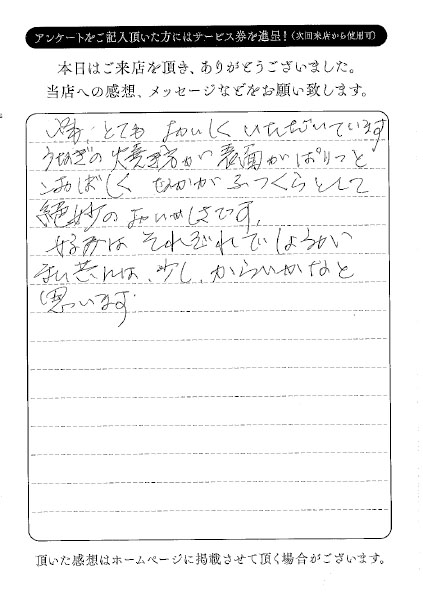 アンケートをご記入頂いた方にはサービス券を進呈!(次回来店から使用可)
本日はご来店を頂き、ありがとうございました。
当店への感想、メッセージなどをお願い致します。
とても おいしく いただいています
うなぎの 焼き方が 表面がぱりっと
こおばしく なかが ふっくらとして
絶妙の おいしさです。
好みは それぞれでしょうが
には、少し、からいかなと
思います
頂いた感想はホームページに掲載させて頂く場合がございます。